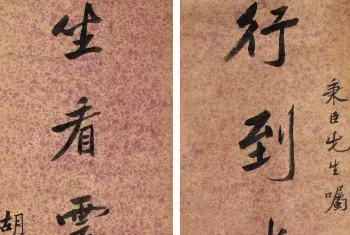 秉臣先生囑
行到
坐看雲
胡